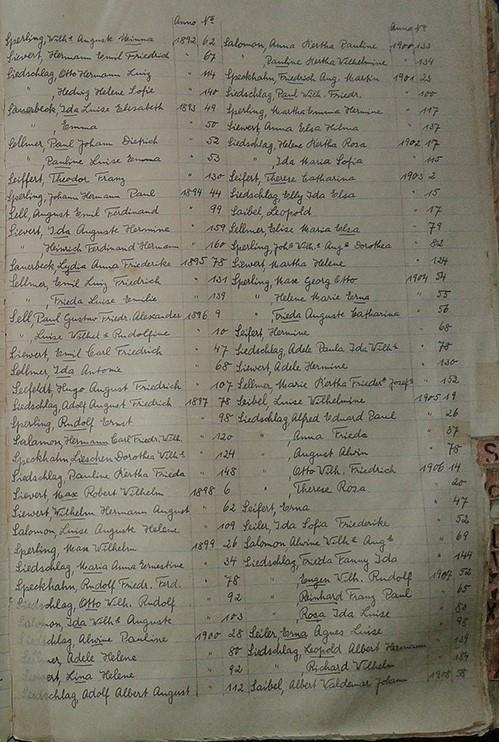 Anno No.
Sperling, Wilh. Auguste Minna 1892 62
Sievert, Hermann Emil Friedrich " 67
Siedschlag, Otto Hermann Luis " 114
" Hedwig Helene Sofie " 140
Sauerbeck, Ida Luise Elisabeth 1893 49
" Emma " 50
Sellmer, Paul Johann Dietrich " 52
" Pauline Luise Emma " 53
Seiffert, Theodor Franz " 130
Sperling, Johann Hermann Paul 1894 44
Sell, August Emil Ferdinand " 99
Sievert, Ida Auguste Hermine 1895 159
" Heinrich Ferdinand Hermann " 160
Sauerbeck, Lydia Anna Friederike 1895 78
Sellmer, Emil Luis Friedrich " 131
" Frieda Luise Emilie " 139
Sell, Paul Gustav Friedr. Alexander 1896 9
" Luise Wilhel. Rudolfine " 10
Siewert, Emil Carl Friedrich " 47
Sellmer Ida Antonie " 68
Seefeldt, Hugo August Friedrich " 107
Siedschlag, Adolf August Friedrich 1897 78
Sperling, Rudolf Ernst " 98
Salamon, Hermann Carl Friedr. Wilh. " 120
Speckhahn, Lieschen Dorothea Wilh. " 124
Siedschlag, Pauline Kertha Frieda " 148
Sievert, Max Robert Wilhelm 1898 6
Siewert, Wilhelm Hermann August " 62
Salomon, Luise Auguste Helene " 109
Sperling, Max Wilhelm 1899 26
Siedschlag, Maria Anna Ernestine " 34
Speckhahn, Rudolf Friedr. Ferd. " 78
Siedschlag, Otto Wilh. Rudolf " 92
Salomon, Ida Wilh. Auguste " 103
Siedschlag, Alwine Pauline 1900 28
Adele Helene " 80
Lina Helene " 92
Siedschlag, Adolf Albert August " 112
Anno No.
Salomon, Anna Kertha Pauline 1900 133
" Pauline Kertha Wilhelmine " 134
Speckhahn, Friedrich Aug. Martin 1901 23
Siedschlag Paul Wilh. Friedr. " 100
Sperling, Martha Emma Hermine " 117
Siewert Anna Elsa Hilma " 137
Siedschlag, Helene Kertha Rosa 1902 17
" Ida Maria Sofia " 115
Seifert, Therese Catharina 1903 2
Siedschlag, Elly Ida Elsa " 15
Saibel, Leopold " 17
Sellmer Elise Maria Elsa " 79
Sperling, Joh. Wilh. Aug. Dorothea " 82
Siewert, Martha Helene " 124
Sperling Max Georg Otto 1904 54
" Helene Marie Erna " 55
" Frieda Auguste Catharina " 56
Seifert, Hermine " 68
Siedschlag, Adele Paula Ida Wilh. " 78
Siewert, Adele Hermine " 130
Sellmer, Marie Kertha Frieder. Josef. " 152
Seibel, Luise Wilhelmine 1905 19
Siedschlag Alfred Eduard Paul " 26
" Anna Frieda " 37
" August Alwin " 78
" Otto Wilh. Friedrich 1906 14
" Therese Rosa " 20
Seifert, Erna " 47
Seiler, Ida Sofia Friederike " 52
Salomon Alwine Wilh. Aug. " 69
Siedschlag, Frieda Fanny Ida " 149
" Eugen Wilh. Rudolf 1907 52
" Reinhard Franz Paul " 65
" Rosa Ida Luise " 80
Seiler, Erna Agnes Luise " 98
Siedschlag, Leopold Albert Hermann " 139
" Richard Wilhelm " 189
Saibel, Albert Valdemar Johann 1908 58